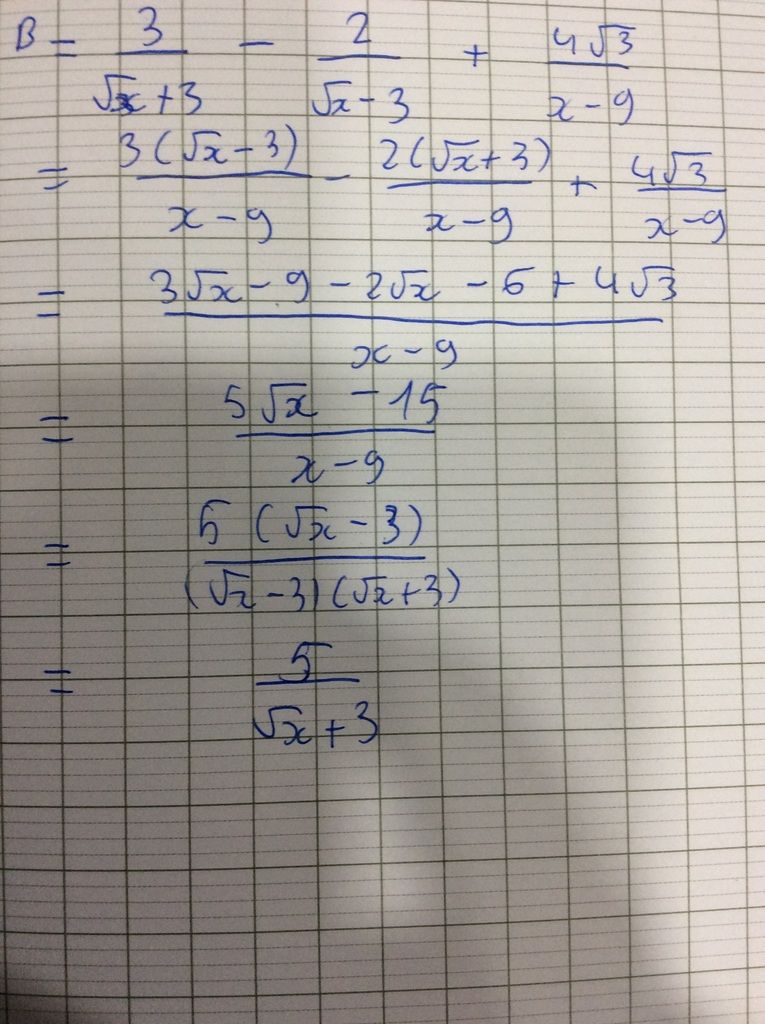 B = 3/(√x + 3) - 2/(√x - 3) + 4√3/(x - 9)
= 3(√x - 3)/(x - 9) - 2(√x + 3)/(x - 9) + 4√3/(x - 9)
= (3√x - 9 - 2√x - 6 + 4√3)/(x - 9)
= (5√x - 15)/(x - 9)
= 5(√x - 3)/((√x - 3)(√x + 3))
= 5/(√x + 3)